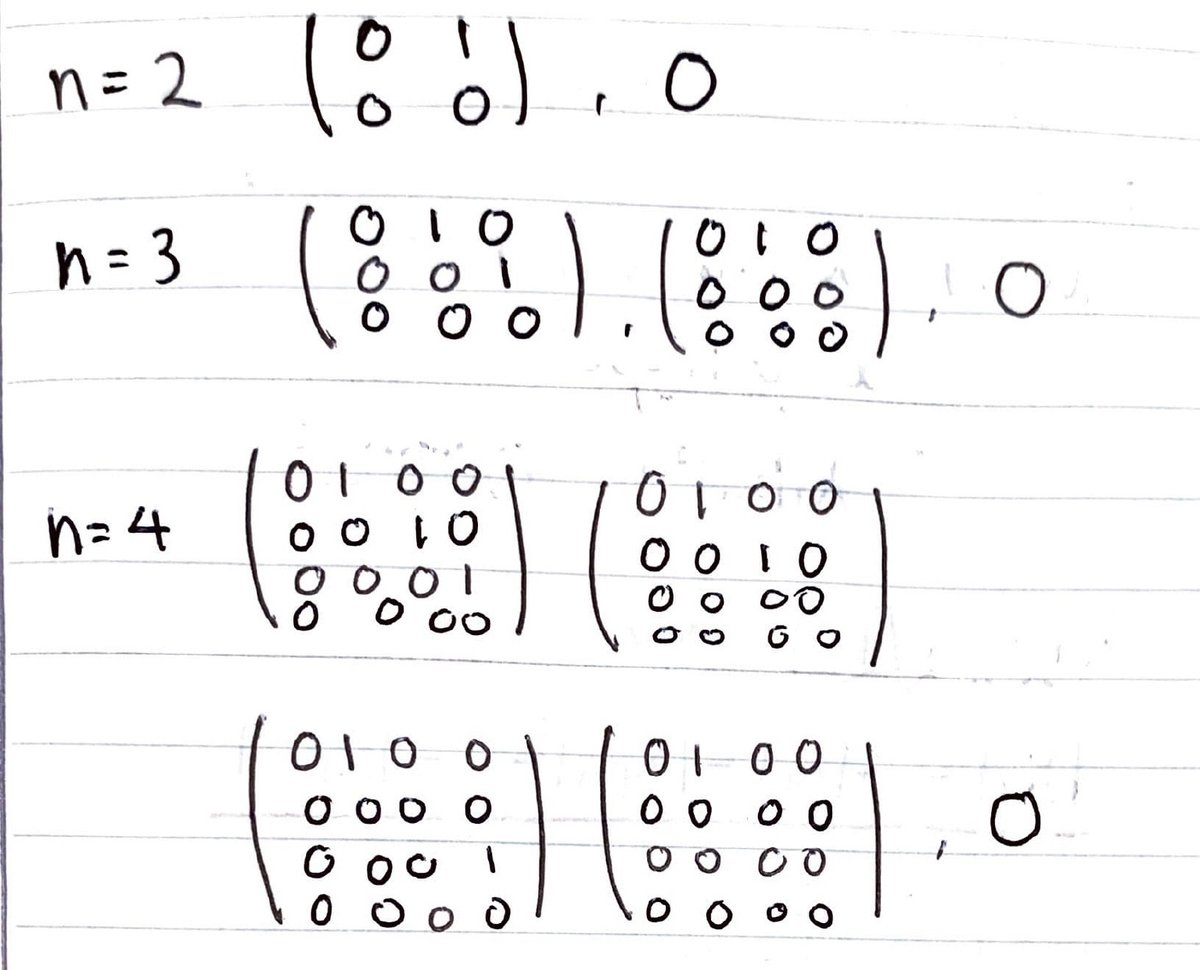 n = 2 ( 0 1 ) , 0
( 0 0 )
n = 3 ( 0 1 0 ) , ( 0 1 0 ) , 0
( 0 0 1 ) ( 0 0 0 )
( 0 0 0 ) ( 0 0 0 )
n = 4 ( 0 1 0 0 ) ( 0 1 0 0 )
( 0 0 1 0 ) ( 0 0 1 0 )
( 0 0 0 1 ) ( 0 0 0 0 )
( 0 0 0 0 ) ( 0 0 0 0 )
( 0 1 0 0 ) ( 0 1 0 0 ) , 0
( 0 0 0 0 ) ( 0 0 0 0 )
( 0 0 0 1 ) ( 0 0 0 0 )
( 0 0 0 0 ) ( 0 0 0 0 )